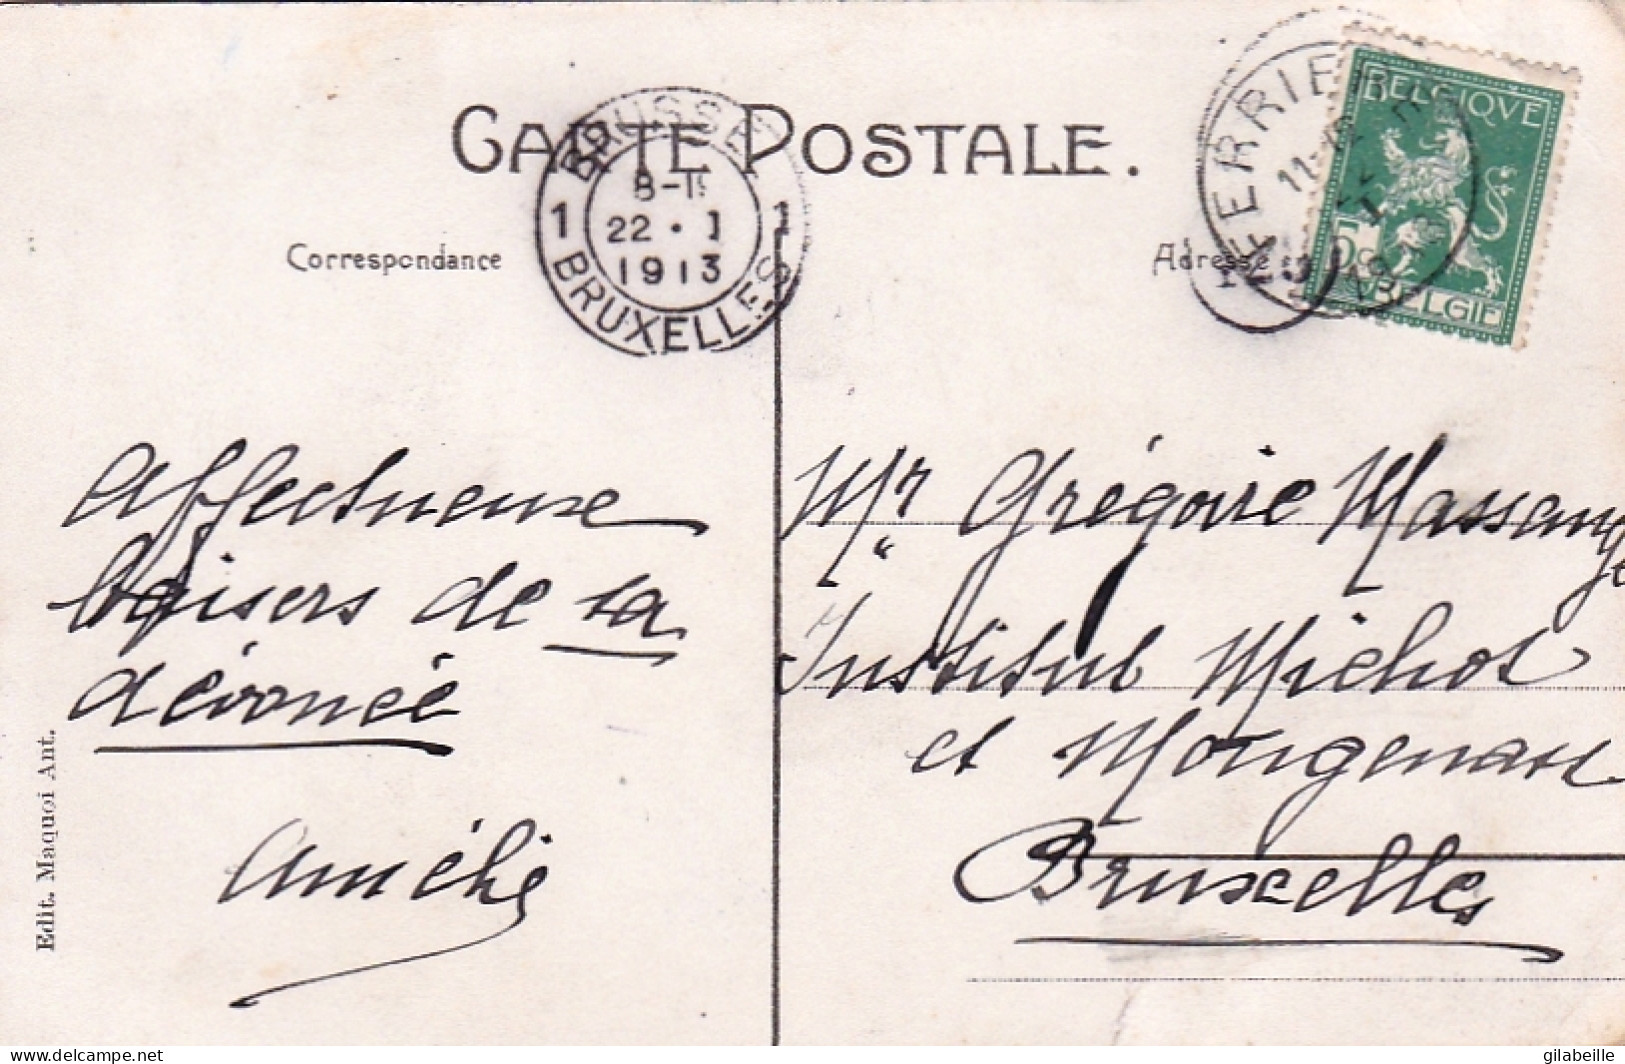 CARTE POSTALE.
BRUSSEL
8-11
1 22·1 1
1913
BRUXELLES
BELGIQVE
5c
BELGIE
Correspondance
Adresse
Affectueuse
baisers de ta
dévouée
Amélie
Mr Grégoire Massange
Institut Michot
et Mongenast
Bruxelles
Edit. Maquoi Ant.
delcampe.net
gilabeille